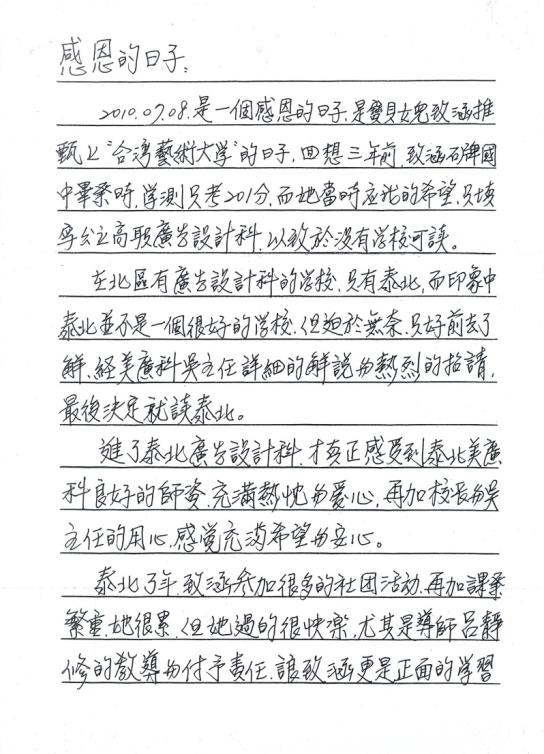 感恩的日子:
2010.07.08.是一個感恩的日子.是寶貝女兒致涵推
甄上“台湾藝術大学”的日子.回想三年前.致涵石牌國
中畢業時.学測只考201分.而她當時應我的希望.只填
寫公立高職廣告設計科.以致於沒有学校可讀。
在北區有廣告設計科的学校.只有泰北.而印象中
泰北並不是一個很好的学校.但迫於無奈.只好前去了
解.経美廣科吳主任詳細的解說与熱烈的招請,
最後決定就讀泰北。
進了泰北廣告設計科.才真正感受到泰北美廣
科良好的師資.充滿熱忱与愛心.再加校長与吳
主任的用心.感覚充滿希望与安心。
泰北3年.致涵參加很多的社团活动.再加課業
繁重.她很累.但她過的很快樂.尤其是導師呂靜
修的教導与付予責任.讓致涵更是正面的学習